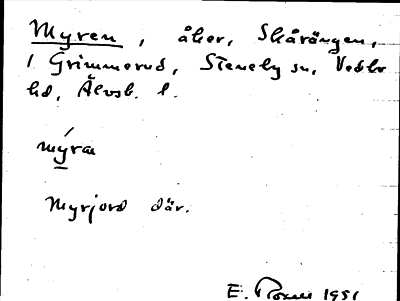 Myren, åker, Skårängen,
i Grimmerud, Steneby sn, Vedbo
hd, Älvsb. l.
mýran
Myrjord där.
E. 1951